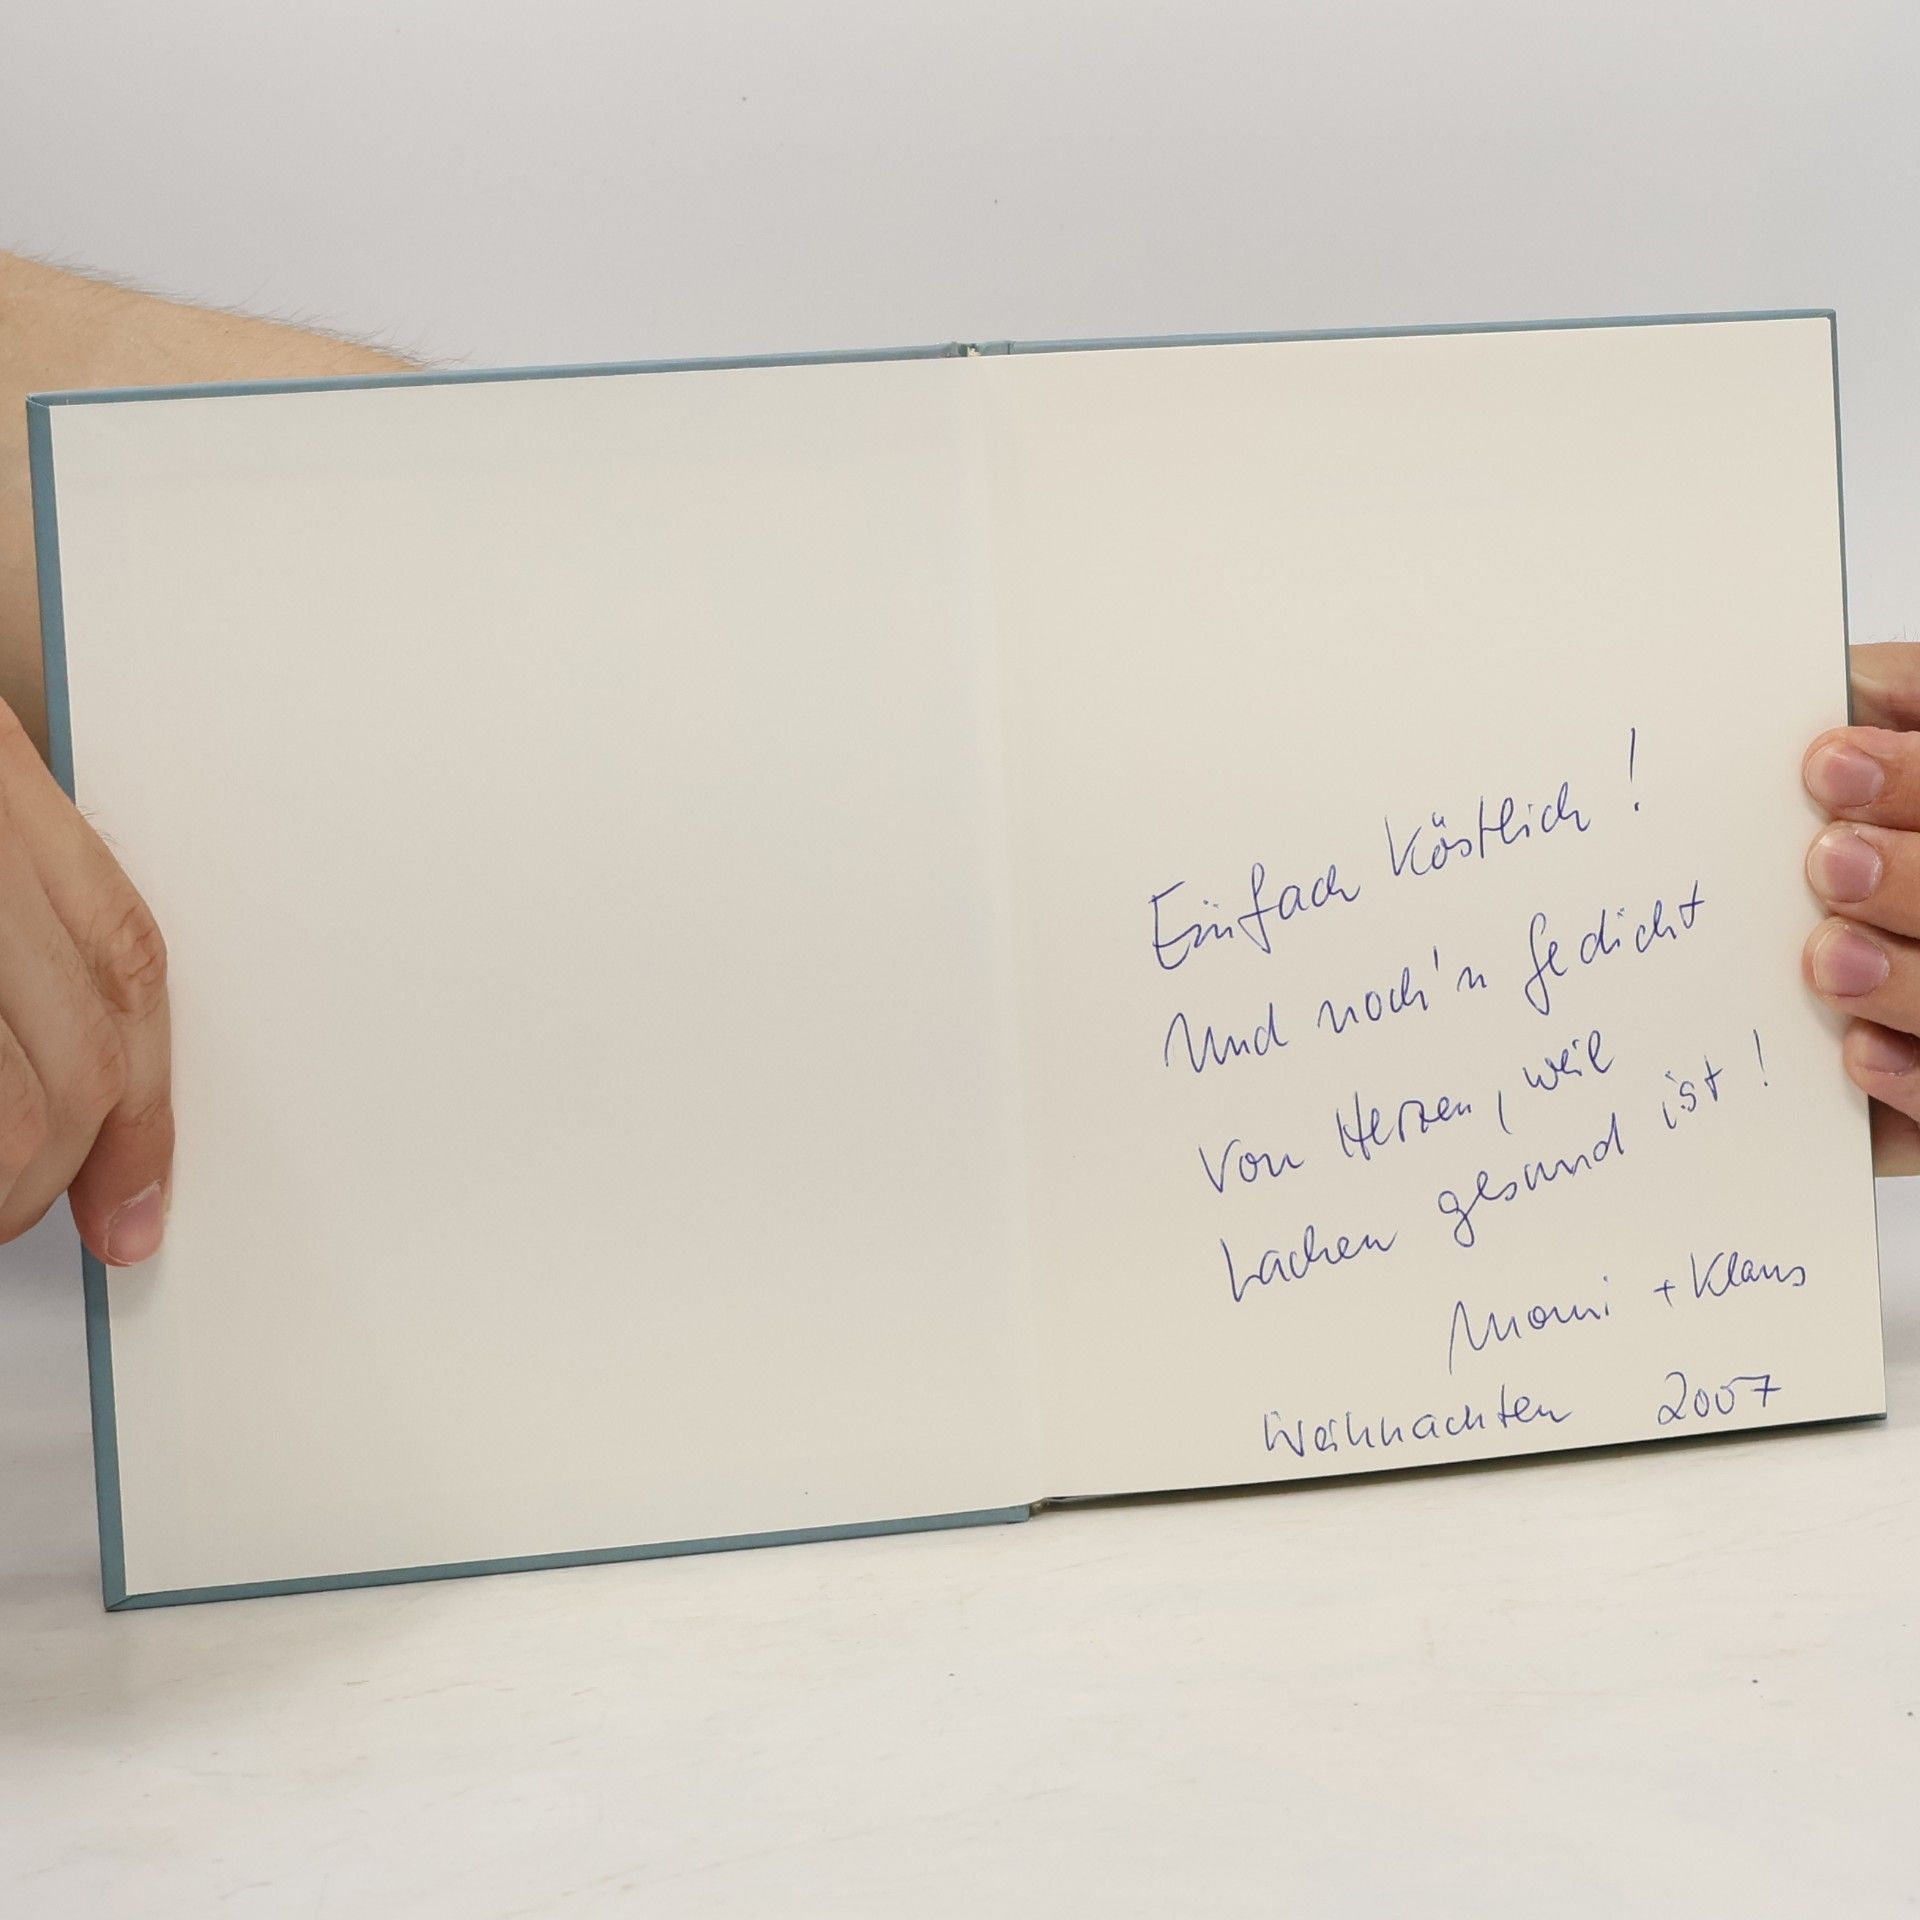 Einfach Köstlich!
Und noch'n Gedicht
Von Herzen, weil
Lachen gesund ist!
Momi + Klaus
Weihnachten 2007